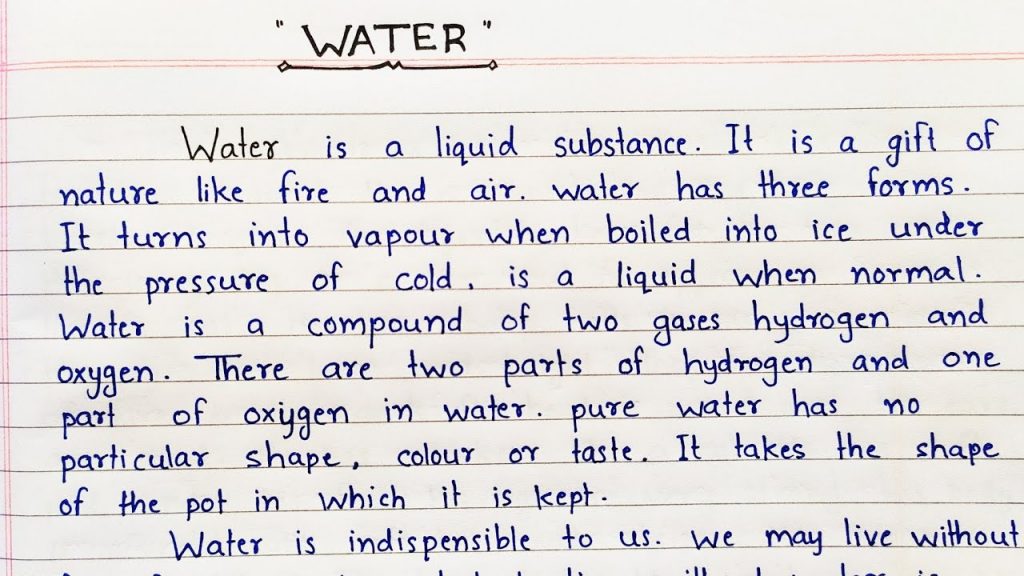 " WATER "
Water is a liquid substance. It is a gift of
nature like fire and air. water has three forms.
It turns into vapour when boiled into ice under
the pressure of cold, is a liquid when normal.
Water is a compound of two gases hydrogen and
oxygen. There are two parts of hydrogen and one
part of oxygen in water. pure water has no
particular shape, colour or taste. It takes the shape
of the pot in which it is kept.
Water is indispensible to us. we may live without